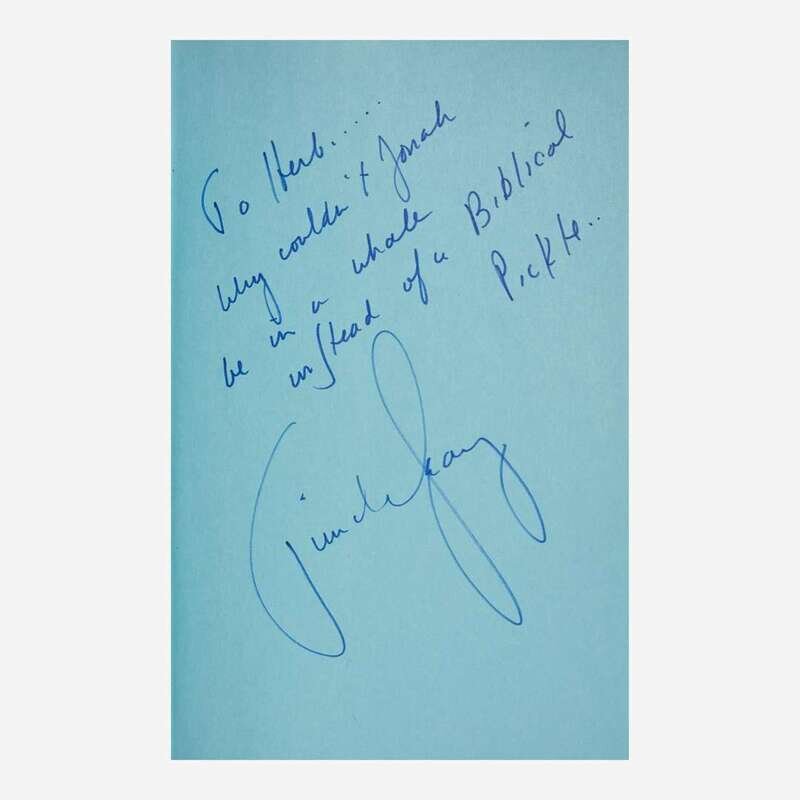 To Herb.....
why couldn't Jonah
be in a whale
instead of a Biblical
Pickle..